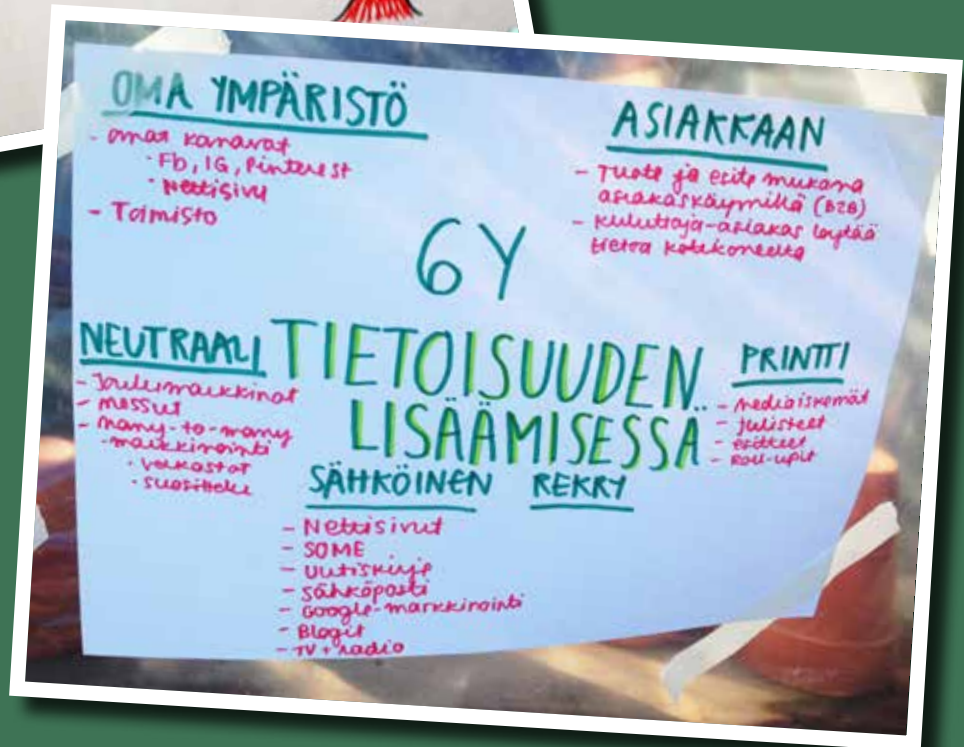 OMA YMPÄRISTÖ
- omat kanavat
· Fb, IG, Pinterest
· Nettisivu
- Toimisto
ASIAKKAAN
- Tuote ja esite mukana
asiakaskäynnillä (B2B)
- kuluttaja-asiakas löytää
tietoa kotikoneelta
6Y
TIETOISUUDEN
LISÄÄMISESSÄ
NEUTRAALI
- Joulumarkkinat
- messut
- many-to-many
-markkinointi
· verkostot
· suosittelu
PRINTTI
- mediaiskemät
- julisteet
- esitteet
- Roll-upit
SÄHKÖINEN
- Nettisivut
- SOME
- uutiskirje
- sähköposti
- Google-markkinointi
- Blogit
- TV + radio
REKRY